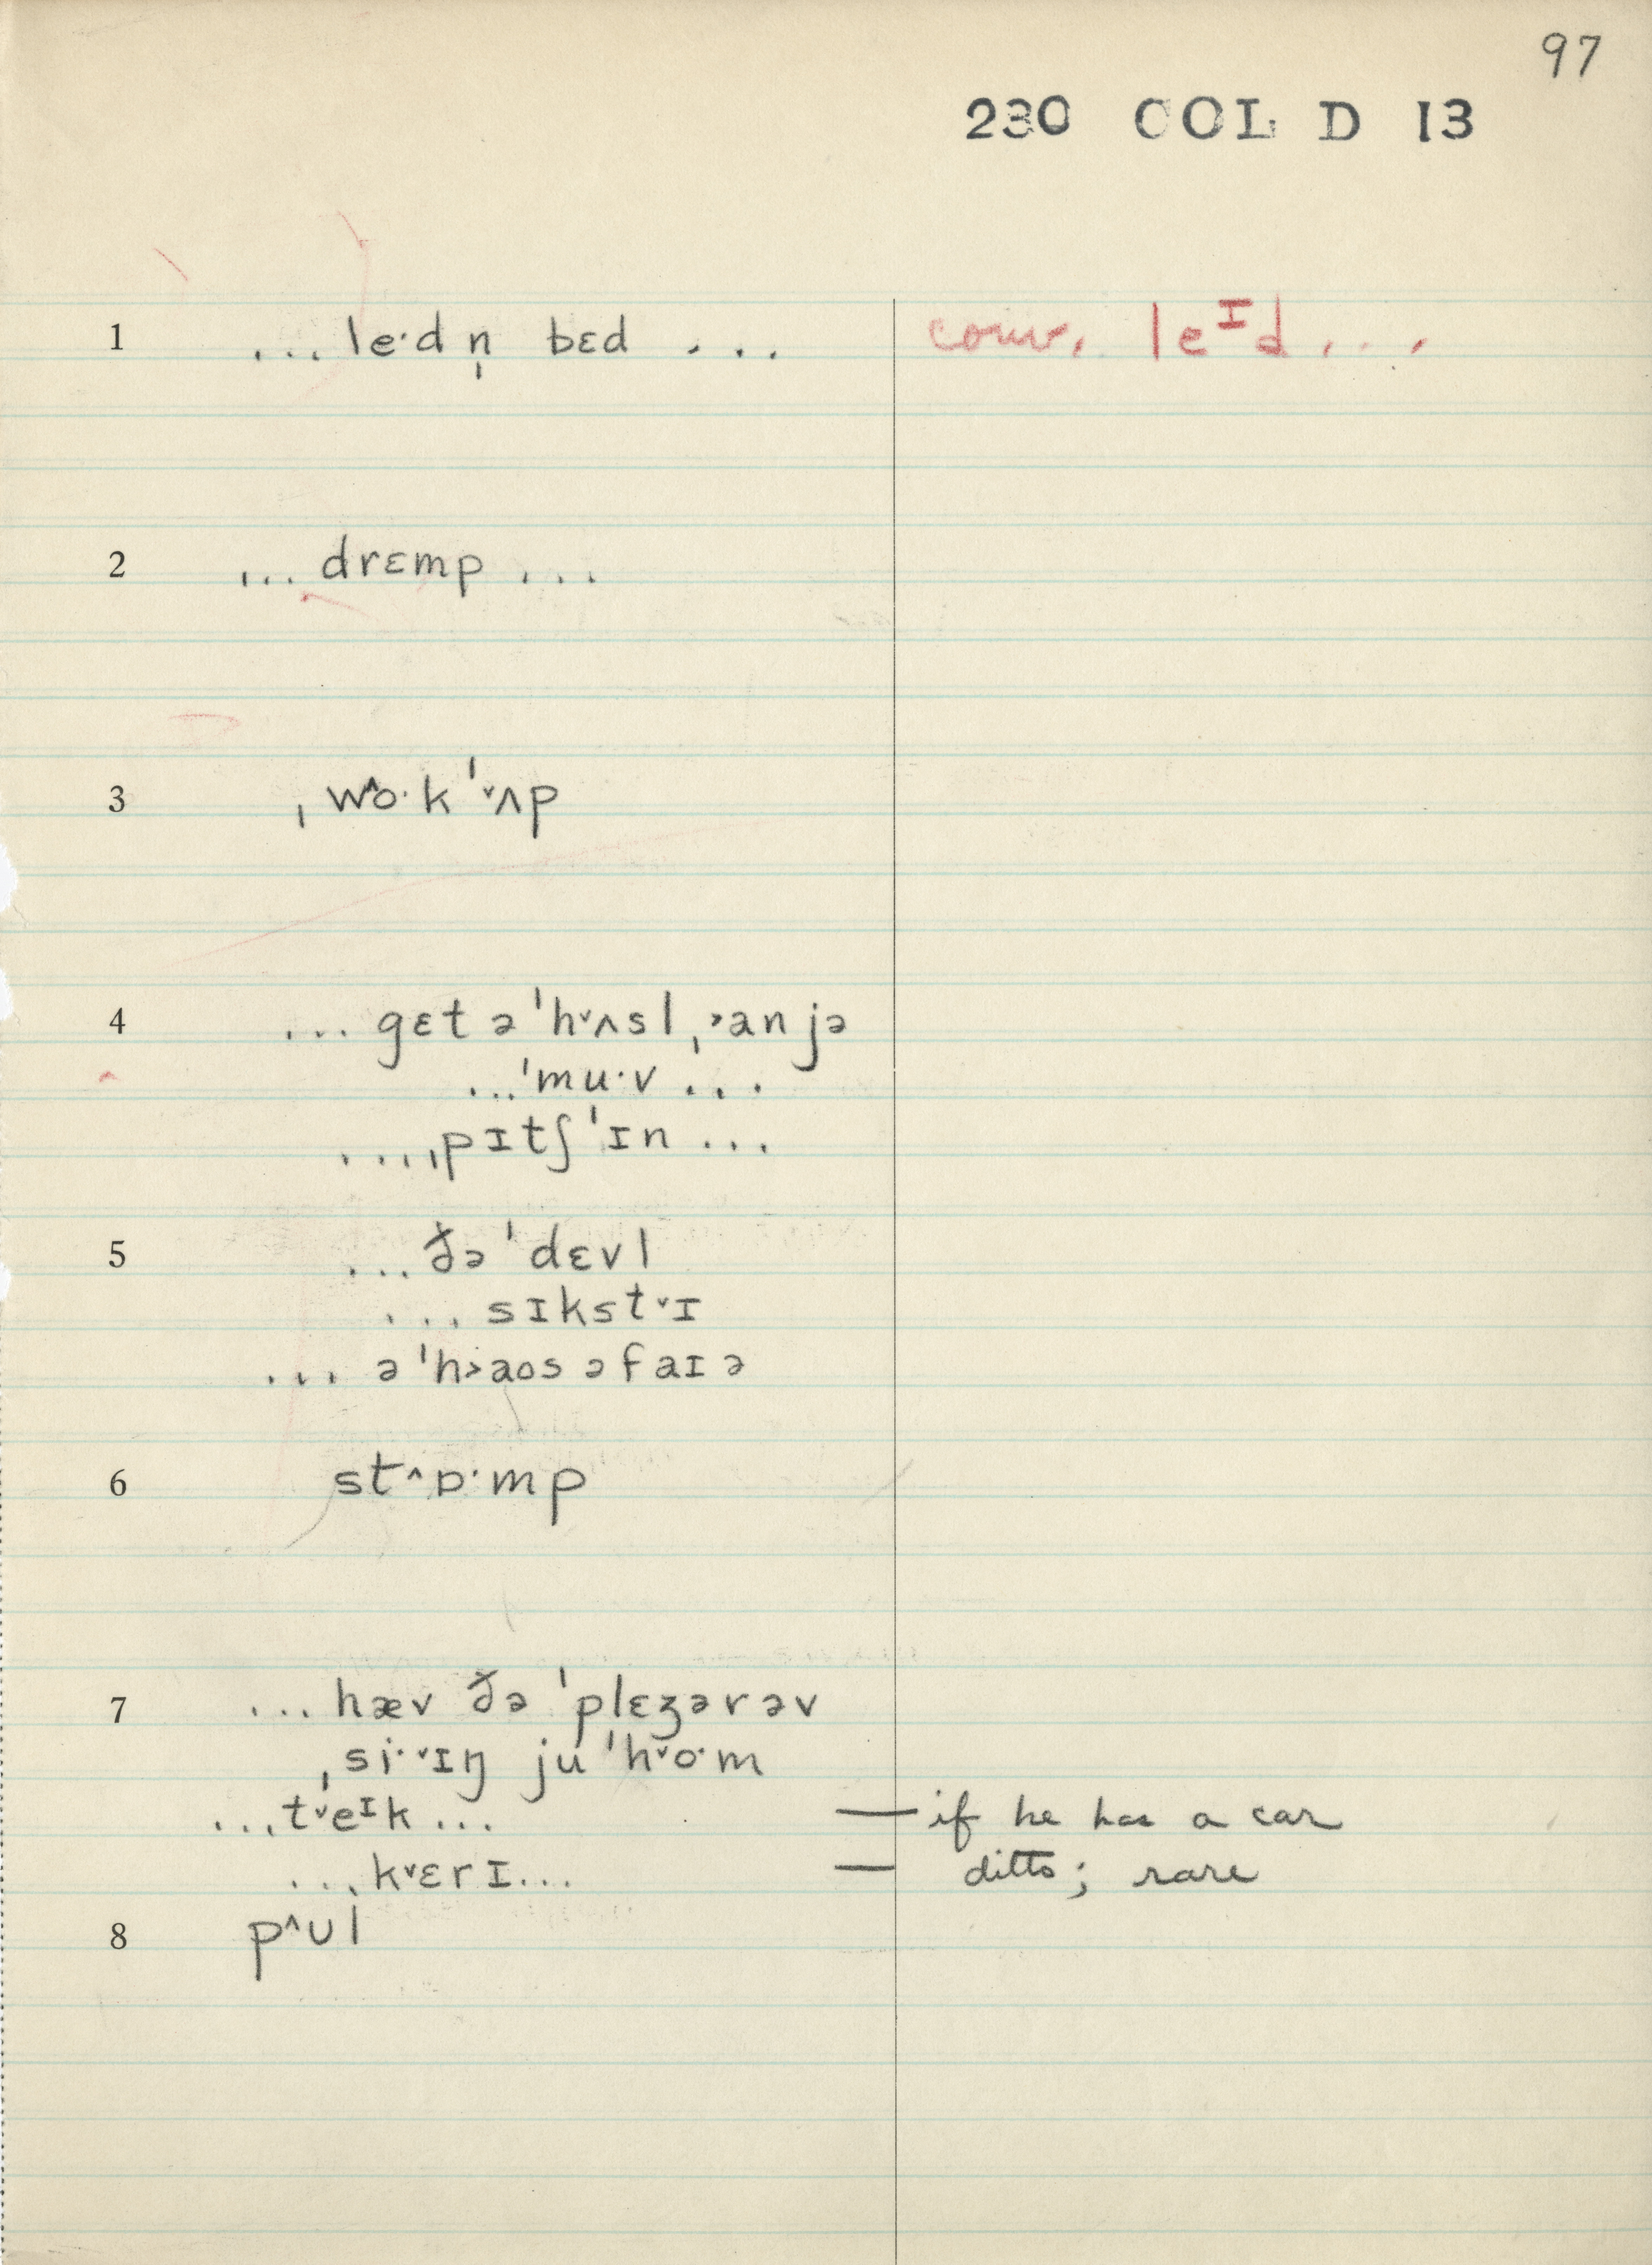 97
230 COL D 13
1 ...le·d n̩ bɛd ... conv. leᴵd ...
2 ... drɛmp ...
3 ˌw^o·k ˈ˅ʌp
4 ... gɛt ə ˈh˅ʌsl̩ ˃an jə
...ˈmu·v ...
....ˌpɪtʃ ˈɪn ...
5 ... ðə ˈdɛvl
... sɪkst˅ɪ
... ə ˈh˃aʊs ə faɪə
6 st^ɒ·mp
7 ... hæv ðə ˈplɛʒərəv
ˌsi·˅ɪŋ ju ˈh˅o·m
...t˅eᴵk ... — if he has a car
...k˅ɛrɪ... — ditto; rare
8 p^ʊl